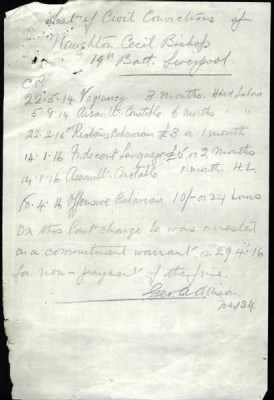 List of Civil Convictions of
Naughton Cecil Bishop
19th Batt. Liverpool
C.P.
22.5.14 Vagrancy 3 months. Hard Labour
5.8.14 Assault. Constable 6 months
22.2.16 Riotous Behaviour £3 or 1 month
14.1.16 Indecent Language £5 or 2 months
14.1.16 Assault. Constable 1 month H.L.
18.4.16 Offensive Behaviour 10/- or 24 hours
On this last charge he was arrested
on a commitment warrant on 29.4.16
for non-payment of the fine.
Geo
134